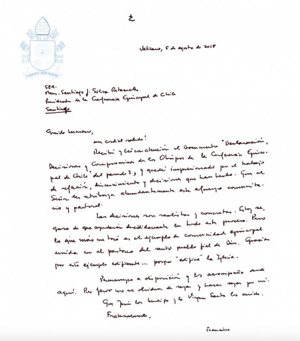 Vaticano, 5 de agosto de 2018
S.E.R.
Mons. Santiago J. Silva Retamales
Presidente de la Conferencia Episcopal de Chile
Santiago
Querido hermano,
un cordial saludo!
Recibí y leí con atención el documento "Declaración,
Decisiones y Compromisos de los Obispos de la Conferencia Episco-
pal de Chile" del pasado 3, y quedé impresionado por el trabajo
de reflexión, discernimiento y decisiones que han hecho. Que el
Señor les retribuya abundantemente este esfuerzo comunita-
rio y pastoral.
Las decisiones son realistas y concretas. Estoy se-
guro de que ayudarán decididamente en todo este proceso. Pero
lo que más me tocó es el ejemplo de comunidad episcopal
unida en el pastoreo del santo pueblo fiel de Dios. Gracias
por este ejemplo edificante... porque "edifica" la Iglesia.
Permanezco a disposición y los acompaño desde
aquí. Por favor no se olviden de rezar y hacer rezar por mí.
Que Jesús los bendiga y la Virgen Santa los cuide.
Fraternalmente,
Francisco